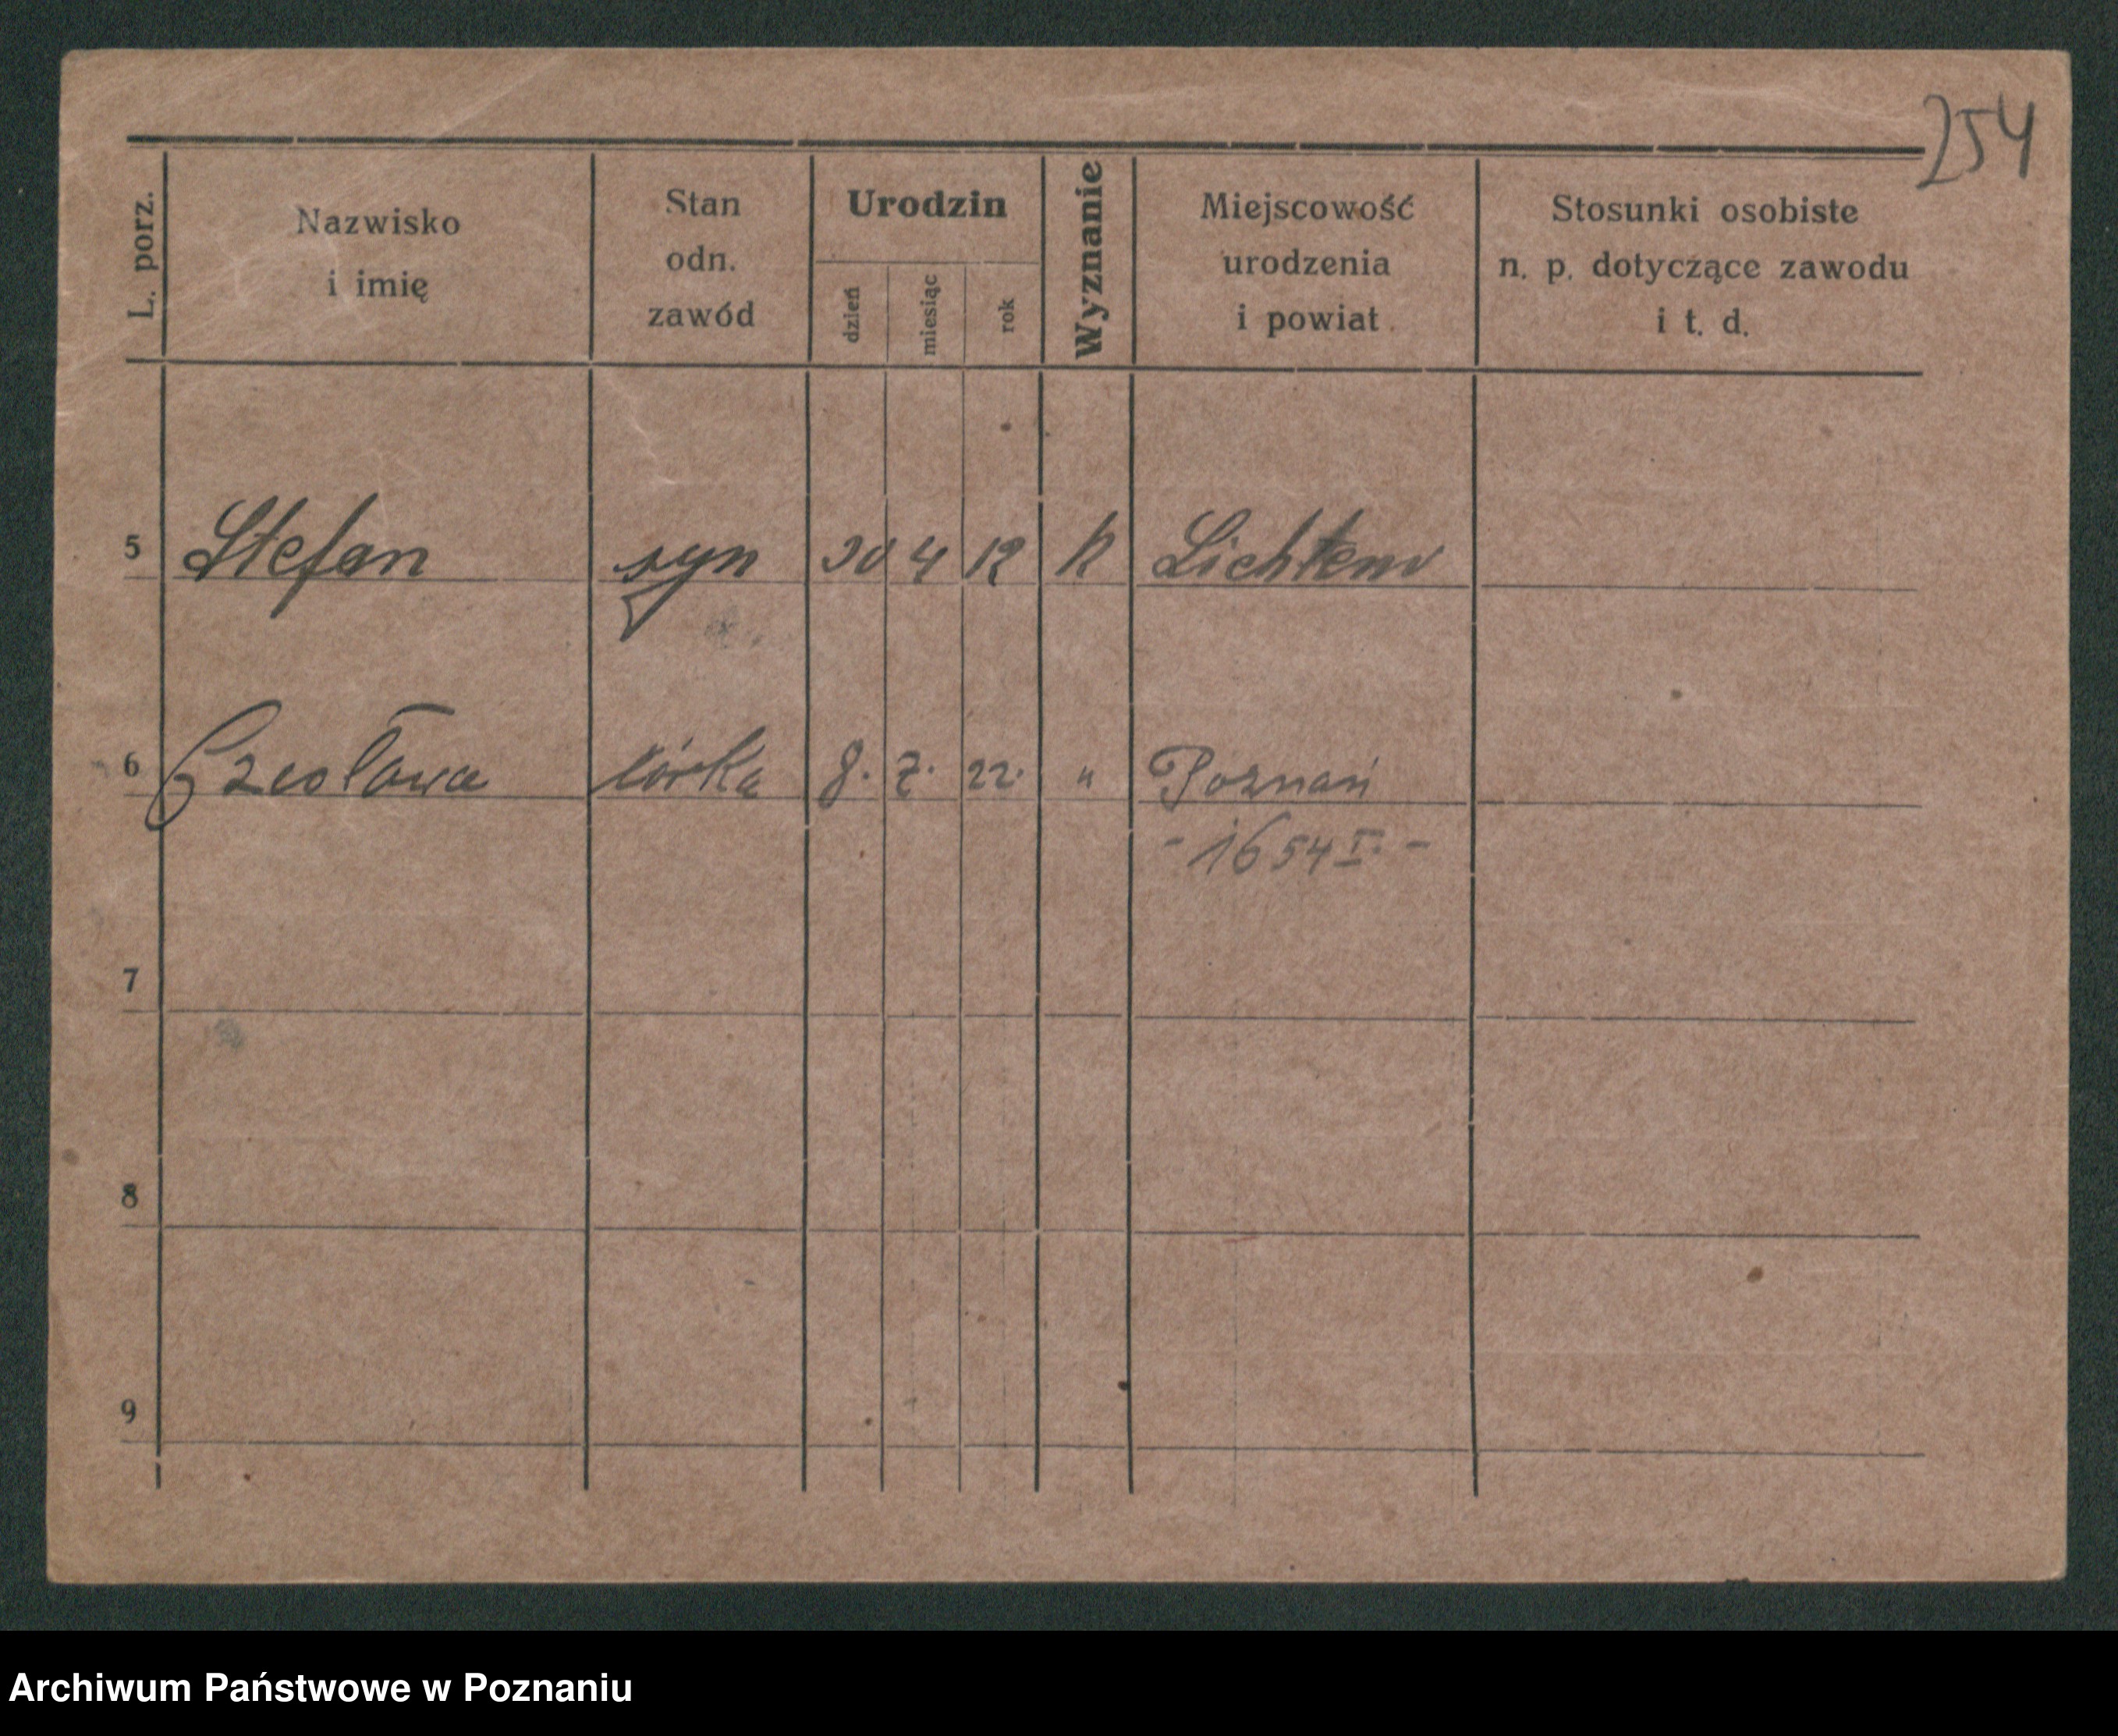 254
L. porz.
Nazwisko
i imię
Stan
odn.
zawód
Urodzin
dzień
miesiąc
rok
Wyznanie
Miejscowość
urodzenia
i powiat
Stosunki osobiste
n. p. dotyczące zawodu
i t. d.
5 Stefan syn 30 4 12 k
6 Czesława córka 8. 7. 22. " Poznań
- 1654 I. -
7
8
9
Archiwum Państwowe w Poznaniu